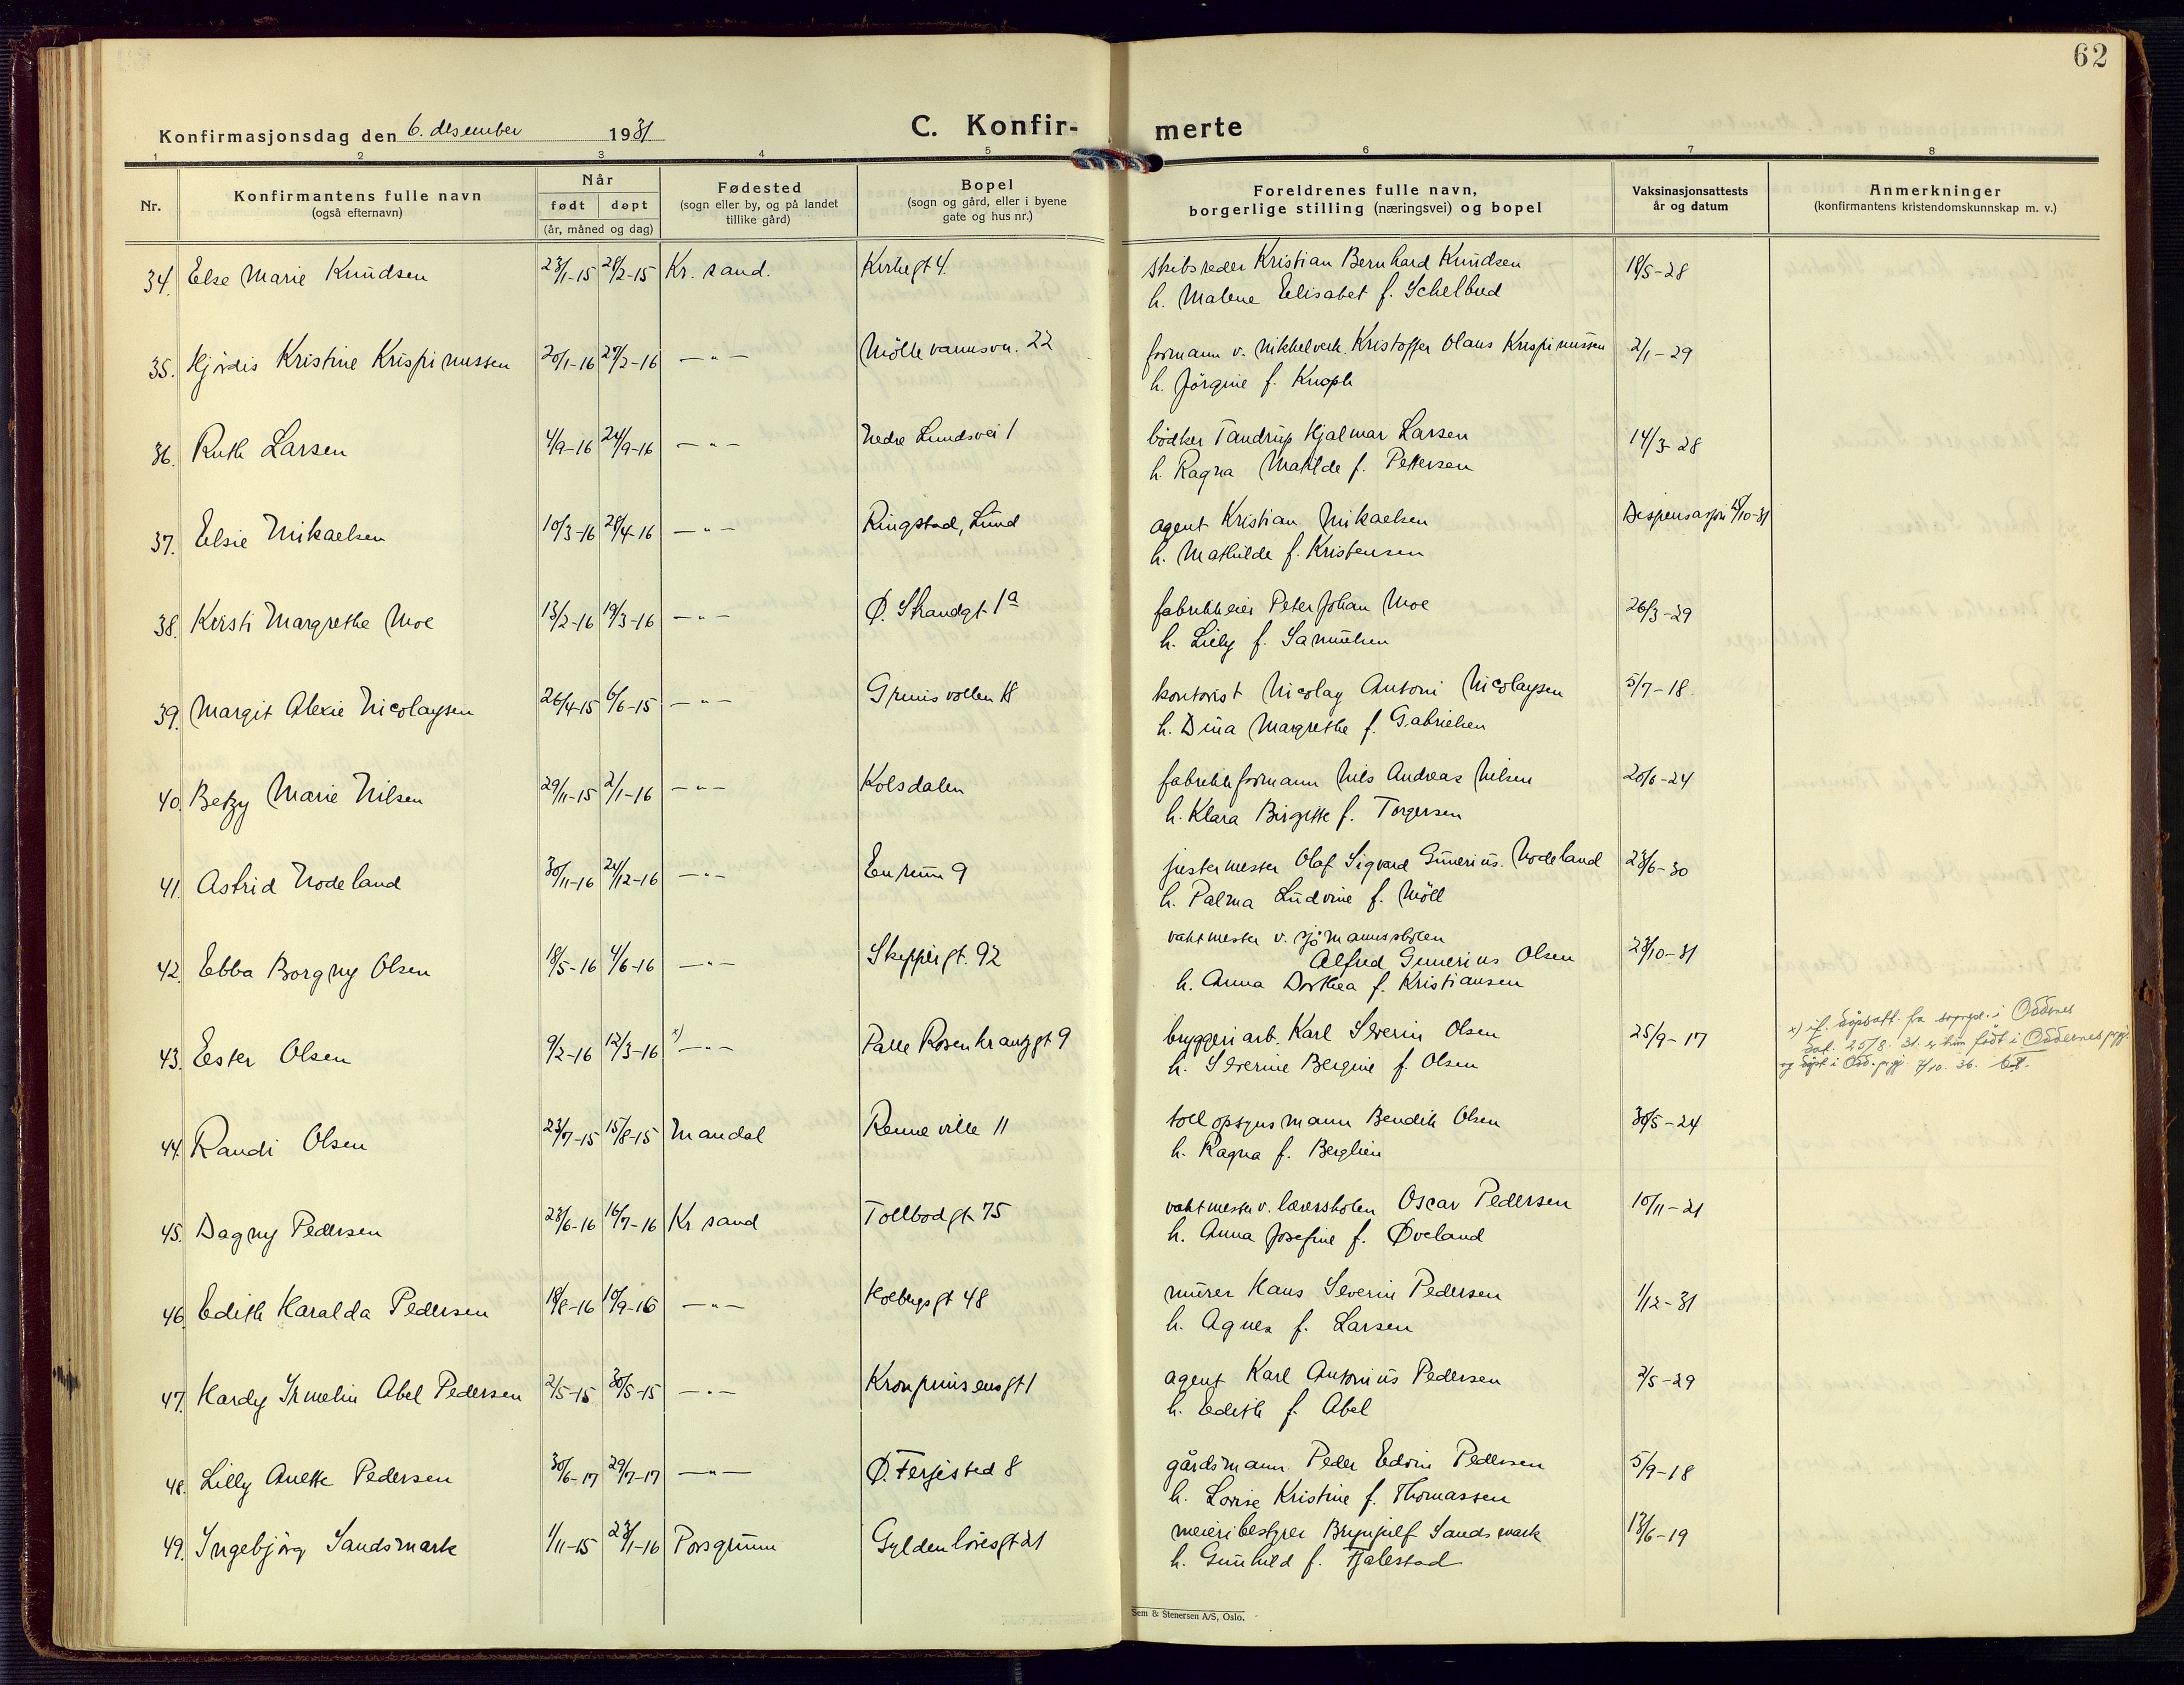 62
Konfirmasjonsdag den 6. desember 1931
C. Konfir- merte
1 2 3 4 5 6 7 8
Nr.
Konfirmantens fulle navn
(også efternavn)
Når
født døpt
(år, måned og dag)
Fødested
(sogn eller by, og på landet
tillike gård)
Bopel
(sogn og gård, eller i byene
gate og hus nr.)
Foreldrenes fulle navn,
borgerlige stilling (næringsvei) og bopel
Vaksinasjonsattests
år og datum
Anmerkninger
(konfirmantens kristendomskunnskap m. v.)
34. Else Marie Knudsen 23/1-15 28/2-15 Kr. sand. Kirkegt 4. skibsreder Kristian Bernhard Knudsen 18/5-28
h. Malene Elisabet f. Schelbred
35. Hjørdis Kristine Krispinussen 20/1-16 27/2-16 —"— Möllevannsvn. 22 formann v. nikkelverk. Kristoffer Olaus Krispinussen 2/1-29
h. Jörgine f. Knoph
36. Ruth Larsen 4/9-16 24/9-16 —"— Nedre Lundsvei 1 bödker Tandrup Hjalmar Larsen 14/3-28
h. Ragna Matilde f. Pettersen
37. Elsie Mikaelsen 10/3-16 28/4-16 —"— Ringstad, Lund agent Kristian Mikaelsen Dispensasjon 18/10-31
h. Mathilde f. Kristensen
38. Kirsti Margrethe Moe 13/2-16 19/3-16 —"— Ø. Strandgt. 1a fabrikkeier Peter Johan Moe 26/3-29
h. Lilly f. Samuelsen
39. Margit Alexie Nicolaysen 26/4-15 6/6-15 —"— Grimsvollen 18 kontorist Nicolay Antoni Nicolaysen 5/7-18
h. Dina Margrethe f. Gabrielsen
40. Betzy Marie Nilsen 29/11-15 2/1-16 —"— Kolsdalen fabrikkformann Nils Andreas Nilsen 20/6-24
h. Klara Birgitte f. Torgersen
41. Astrid Nodeland 30/11-16 24/12-16 —"— Enrum 9 justermester Olaf Sigvard Gunerius Nodeland 23/6-30
h. Palma Ludvine f. Möll
42. Ebba Borgny Olsen 18/5-16 4/6-16 —"— Skippergt. 92 vaktmester v. sjömannsskolen
Alfred Gunerius Olsen 23/10-31
h. Anna Dorthea f. Kristiansen
43. Ester Olsen 9/2-16 12/3-16 x) —"— Palle Rosenkrantzgt 9 bryggeriarb. Karl Severin Olsen 25/9-17
h. Severine Bergine f. Olsen
x) if. dåpsatt. fra sogngpr. i Oddernes
dat. 25/8. 31. er hun födt i Oddernes prgj.
og döpt i Odd. prgj. 7/10. 36.
44. Randi Olsen 23/7-15 15/8-15 Mandal Renneville 11 tollopsynsmann Bendik Olsen 30/5-24
h. Ragna f. Berglien
45. Dagny Pedersen 23/6-16 16/7-16 Kr. sand Tollbodgt. 75 vaktmester v. lærerskolen Oscar Pedersen 10/11-21
h. Anna Josefine f. Øveland
46. Edith Haralda Pedersen 18/8-16 10/9-16 —"— Holbergsgt 48 murer Hans Severin Pedersen 1/12-31
h. Agnes f. Larsen
47. Hardy Irmelin Abel Pedersen 2/5-15 30/5-15 —"— Kronprinsensgt 1 agent Karl Antonius Pedersen 2/5-29
h. Edith f. Abel
48. Lilly Anette Pedersen 30/6-17 29/7-17 —"— Ø. Fergested 8 gårdsmann Peder Edvin Pedersen 5/9-18
h. Lovise Kristine f. Thomassen
49. Ingebjörg Sandsmark 1/11-15 23/1-16 Porsgrunn Gyldenlövesgt 21 meieribestyrer Brynjulf Sandsmark 13/6-19
h. Gunhild f. Tjalestad
Sem & Stenersen A/S, Oslo.